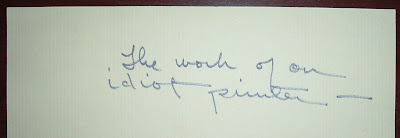 The work of an
idiot printer —